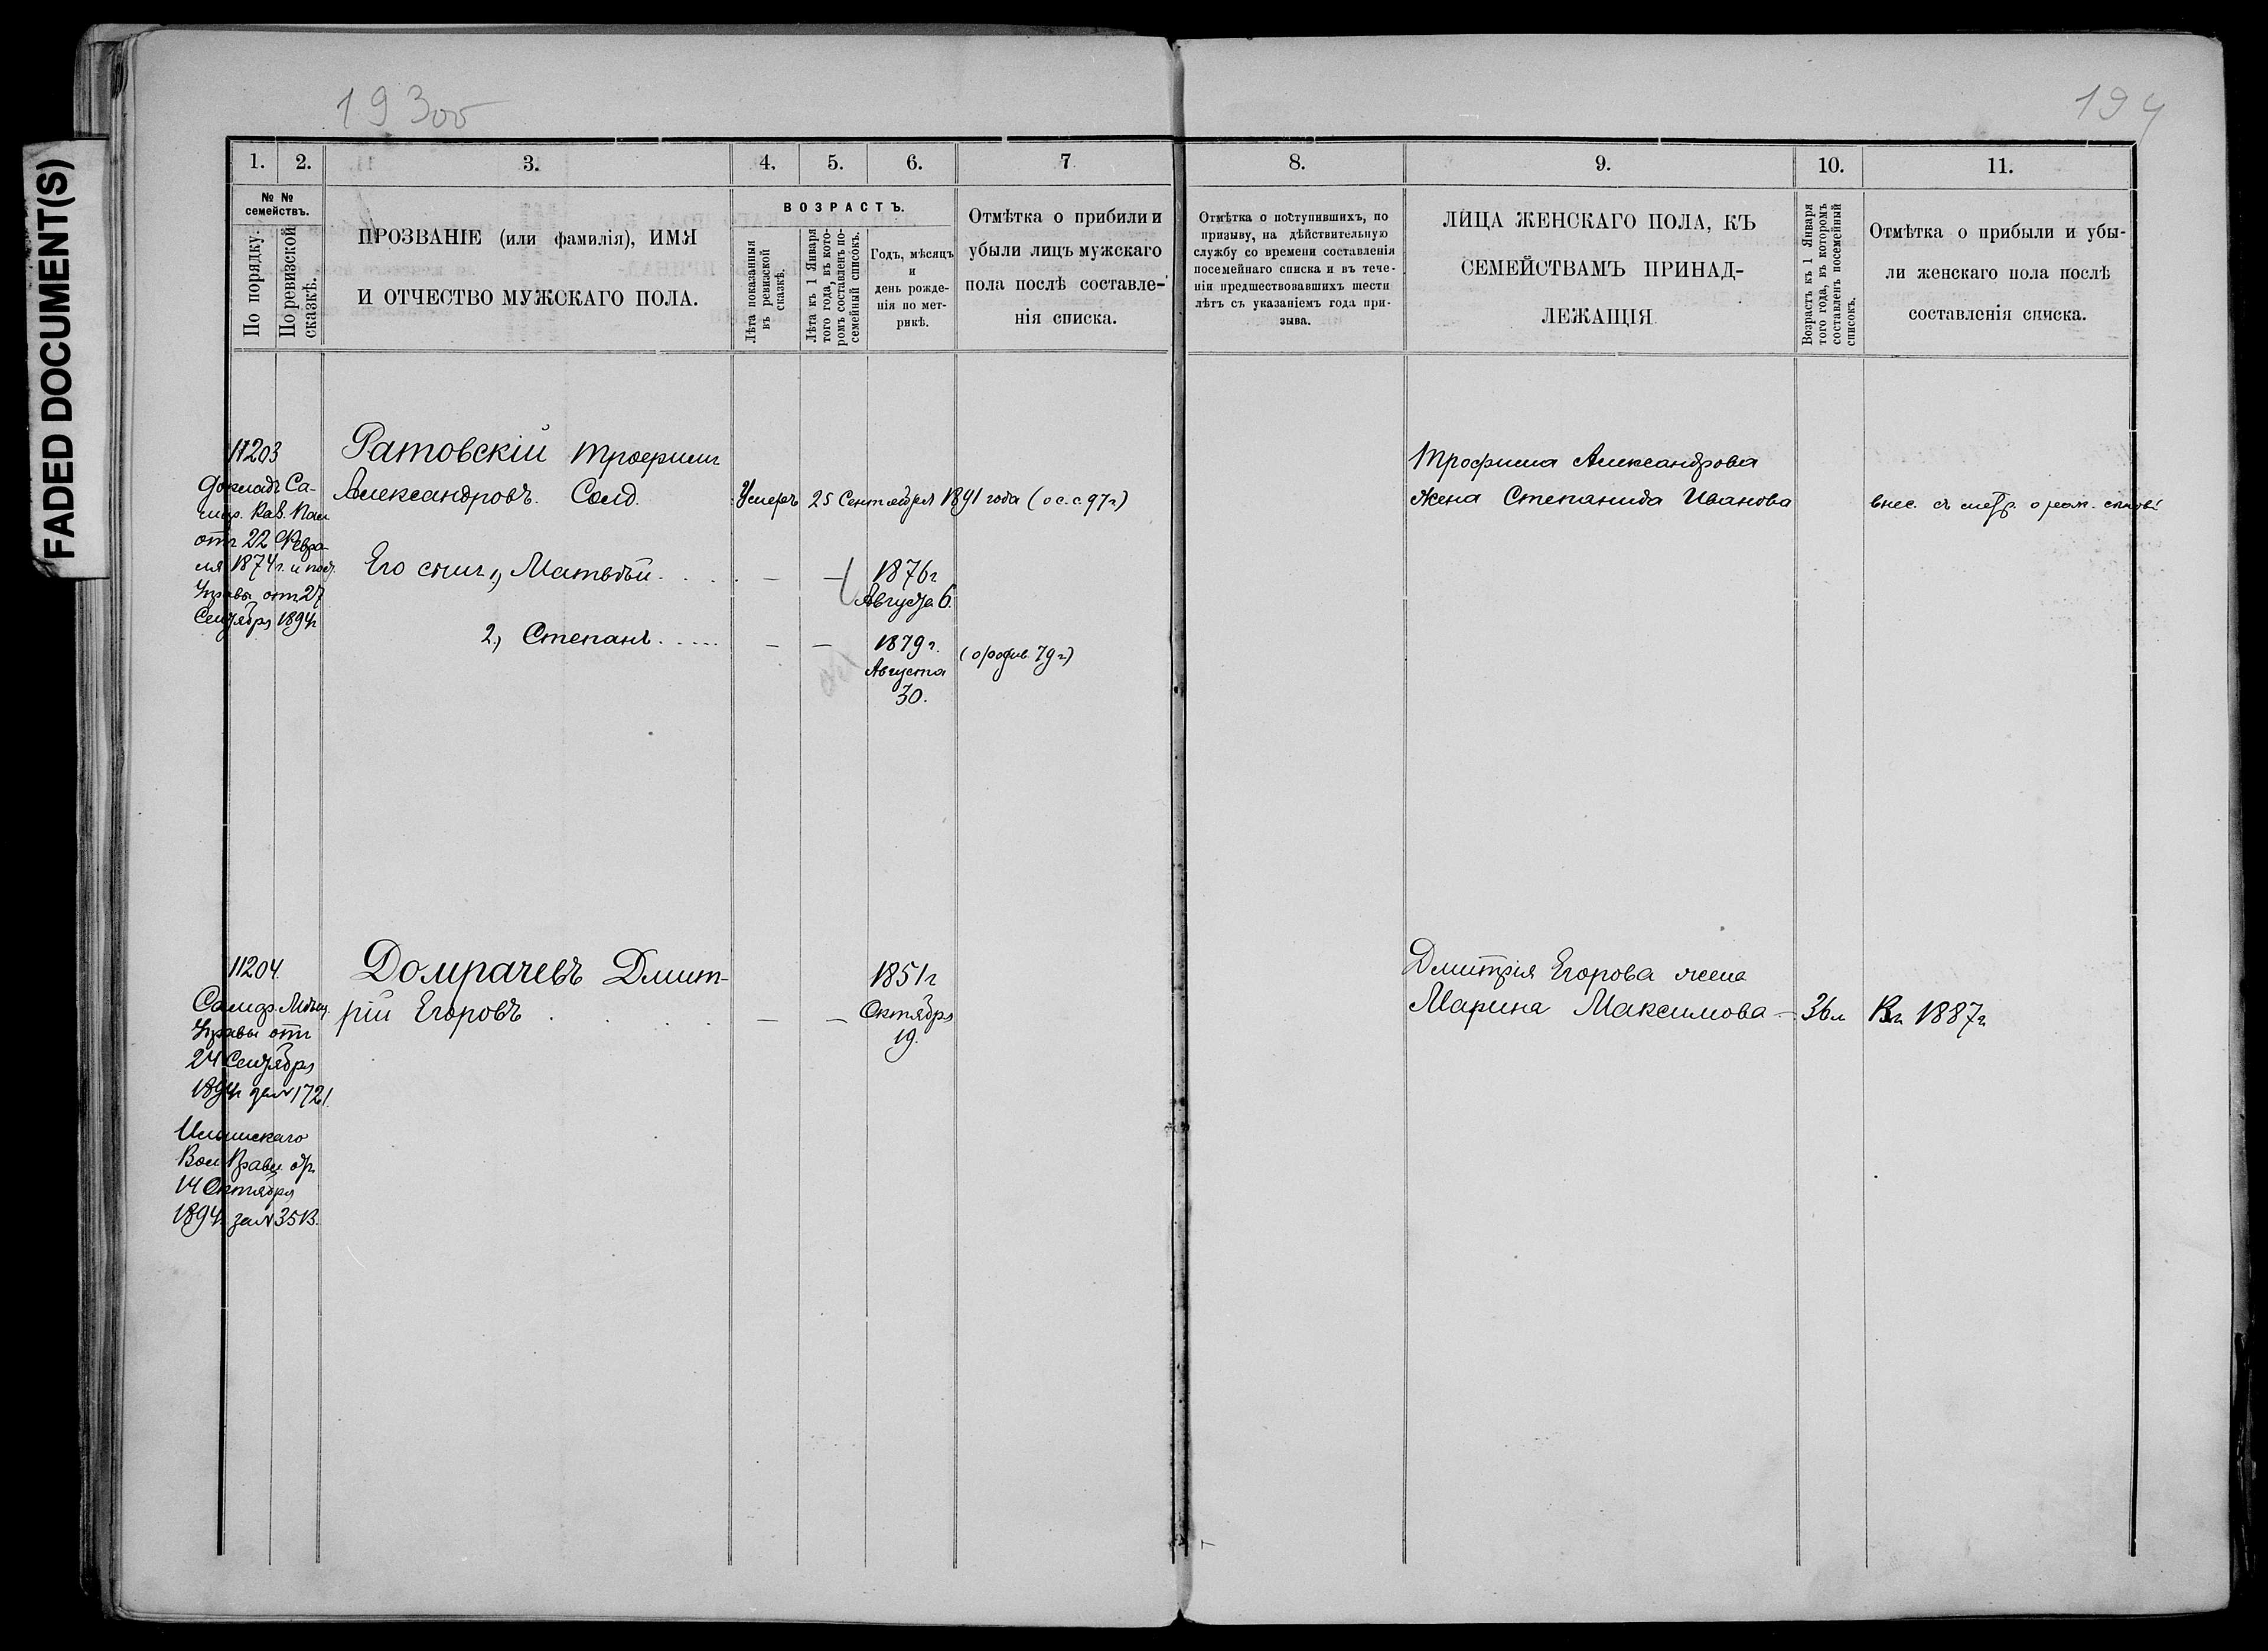 FADED DOCUMENT(S)
193об
194
1. 2. 3. 4. 5. 6. 7 8. 9. 10. 11.
№ №
семействъ.
По порядку.
По ревизской
сказкѣ.
ПРОЗВАНІЕ (или фамилія), ИМЯ
И ОТЧЕСТВО МУЖСКАГО ПОЛА.
ВОЗРАСТЪ.
Лѣта показанныя
въ ревизской
сказкѣ.
Лѣта къ 1 Января
того года, въ кото-
ромъ составленъ по-
семейный списокъ.
Годъ, мѣсяцъ
и
день рожде-
нія по мет-
рикѣ.
Отмѣтка о прибыли и
убыли лицъ мужскаго
пола послѣ составле-
нія списка.
Отмѣтка о поступившихъ, по
призыву, на дѣйствительную
службу со времени составленія
посемейнаго списка и въ тече-
ніи предшествовавшихъ шести
лѣтъ съ указаніемъ года при-
зыва.
ЛИЦА ЖЕНСКАГО ПОЛА, КЪ
СЕМЕЙСТВАМЪ ПРИНАД-
ЛЕЖАЩІЯ
Возрастъ къ 1 Января
того года, въ которомъ
составленъ посемейный
списокъ.
Отмѣтка о прибыли и убы-
ли женскаго пола послѣ
составленія списка.
11203
докладъ Са-
мар. Каз. Пал
отъ 22 Февра-
ля 1874г. и
Управы отъ 27
Сентября 1894г
Ратовскій Трофимъ
Александровъ. Солд.
Умеръ 25 Сентября 1891 года (о с. с 97 г)
Его сын. 1, Матвѣй. 1876г
Августа 6.
2, Степанъ. 1879г. (о родив. 79 г)
Августа
30.
Трофима Александрова
Жена Степанида Иванова
внес. съ метр. о рож.
11204.
Самар. Мѣщ.
Управы отъ
24 Сентября
1894г за № 1721.
Вол Правл. от
14 Октября
1894. за №
Домрачевъ Дмит-
рій Егоровъ
1851г
Октября
19.
Дмитрія Егорова жена
Марина Максимова 36л
1887г